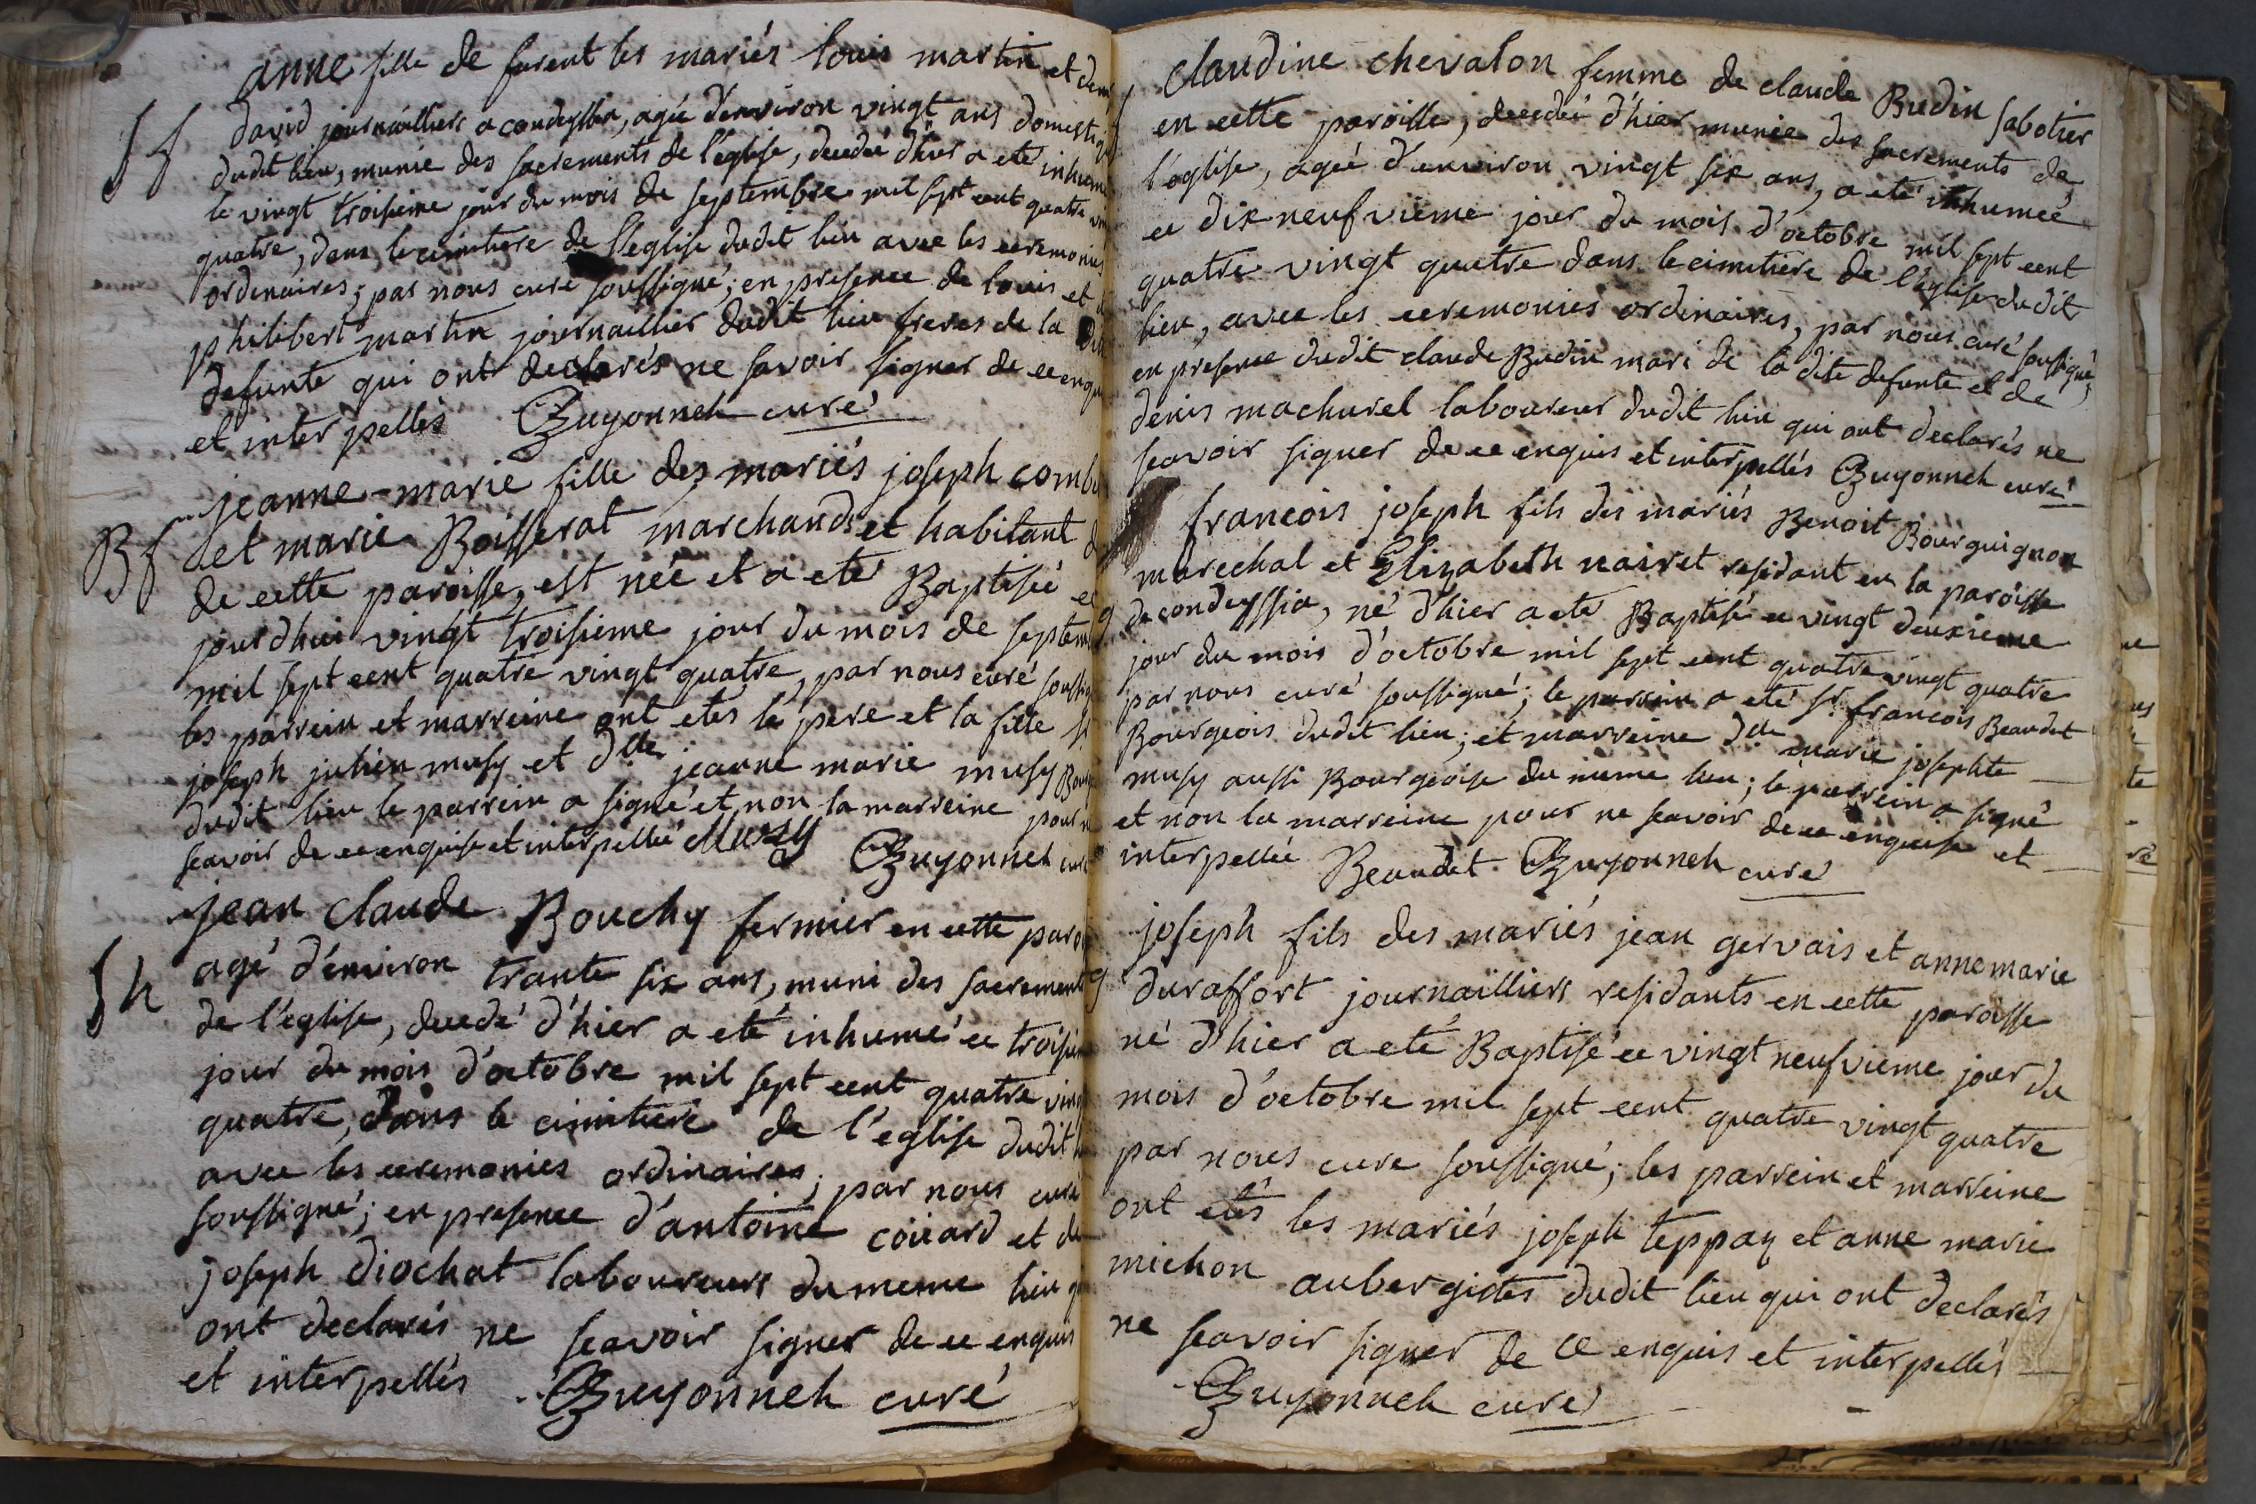 anne fille de furent les mariés louis martin et
Sf david journailliers a condeyssia, agée d'environ vingt ans domestiq
dudit lieu, munie des sacrements de l'eglise, decedeé d'hier a eté inhum
le vingt troisieme jour du mois de septembre mil sept cent quatre vin
quatre, dans le cimitiere de l'eglise dudit lieu avec les ceremonies
ordinaires; par nous curé soussigné; en presence de louis et
philibert martin journaillier dudit lieu freres de la
defunte qui ont declarés ne savoir signer de ce enqu
et interpellés Guyonneh curé
jeanne-marie fille des mariés joseph comb
Bf et marie Boisserat marchands et habitant
de cette paroisse, est néé et a eté Baptiséé
jourdhui vingt troisieme jour du mois de septem
mil sept cent quatre vingt quatre, par nous curé soussig
les parrein et marreine ont etés le pere et la fille sr
joseph julien musy et dlle jeanne marie musy Bour
dudit lieu le parrein a signé et non la marreine pour n
scavoir de ce enquise et interpelleé Musy Guyonneh curé
jean claude Bouchy fermier en cette paro
Sh agé d'environ trante six ans, muni des sacrements
de l'église, decedé d'hier a eté inhumé ce troisiem
jour du mois d'octobre mil sept cent quatre vingt
quatre, dans le cimitiere de l'eglise dudit
avec les ceremonies ordinaires; par nous curé
soussigné; en presence d'antoine coiiard et de
joseph diochat laboureurs du meme lieu q
ont declarés ne scavoir signer de ce enquis
et interpellés Guyonneh curé
claudine chevalon femme de claude Budin sabotier
en cette paroisse, decedeé d'hier munie des sacrements de
l'église, ageé d'environ vingt six ans, a eté inhumeé
ce dix neufvieme jour du mois d'octobre mil sept cent
quatre vingt quatre dans le cimitiere de l'eglise dudit
lieu, avec les ceremonies ordinaires, par nous curé soussigné,
en presence dudit claude Budin mari de la dite defunte et de
denis machurel laboureur dudit lieu qui ont declarés ne
scavoir signer de ce enquis et interpellés Guyonneh curé
francois joseph fils des mariés Benoit Bourguignon
marechal et Elizabeth nairet residant en la paroisse
de condeyssia, né d'hier a eté Baptisé ce vingt deuxieme
jour du mois d'octobre mil sept cent quatre vingt quatre
par nous curé soussigné; le parrein a eté sr. francois Beaudet
Bourgeois dudit lieu; et marreine dlle marie josephte
musy aussi Bourgeoise du meme lieu; le parrein a signé
et non la marreine pour ne scavoir de ce enquise et
interpelleé Beaudet Guyonneh curé
joseph fils des mariés jean gervais et anne marie
duraffort journailliers residants en cette paroisse
né d'hier a eté Baptisé ce vingt neufvieme jour du
mois d'octobre mil sept cent quatre vingt quatre
par nous cure soussigné; les parrein et marreine
ont etés les mariés joseph teppay et anne marie
michon aubergistes dudit lieu qui ont declarés
ne scavoir signer de ce enquis et interpellés
Guyonneh curé